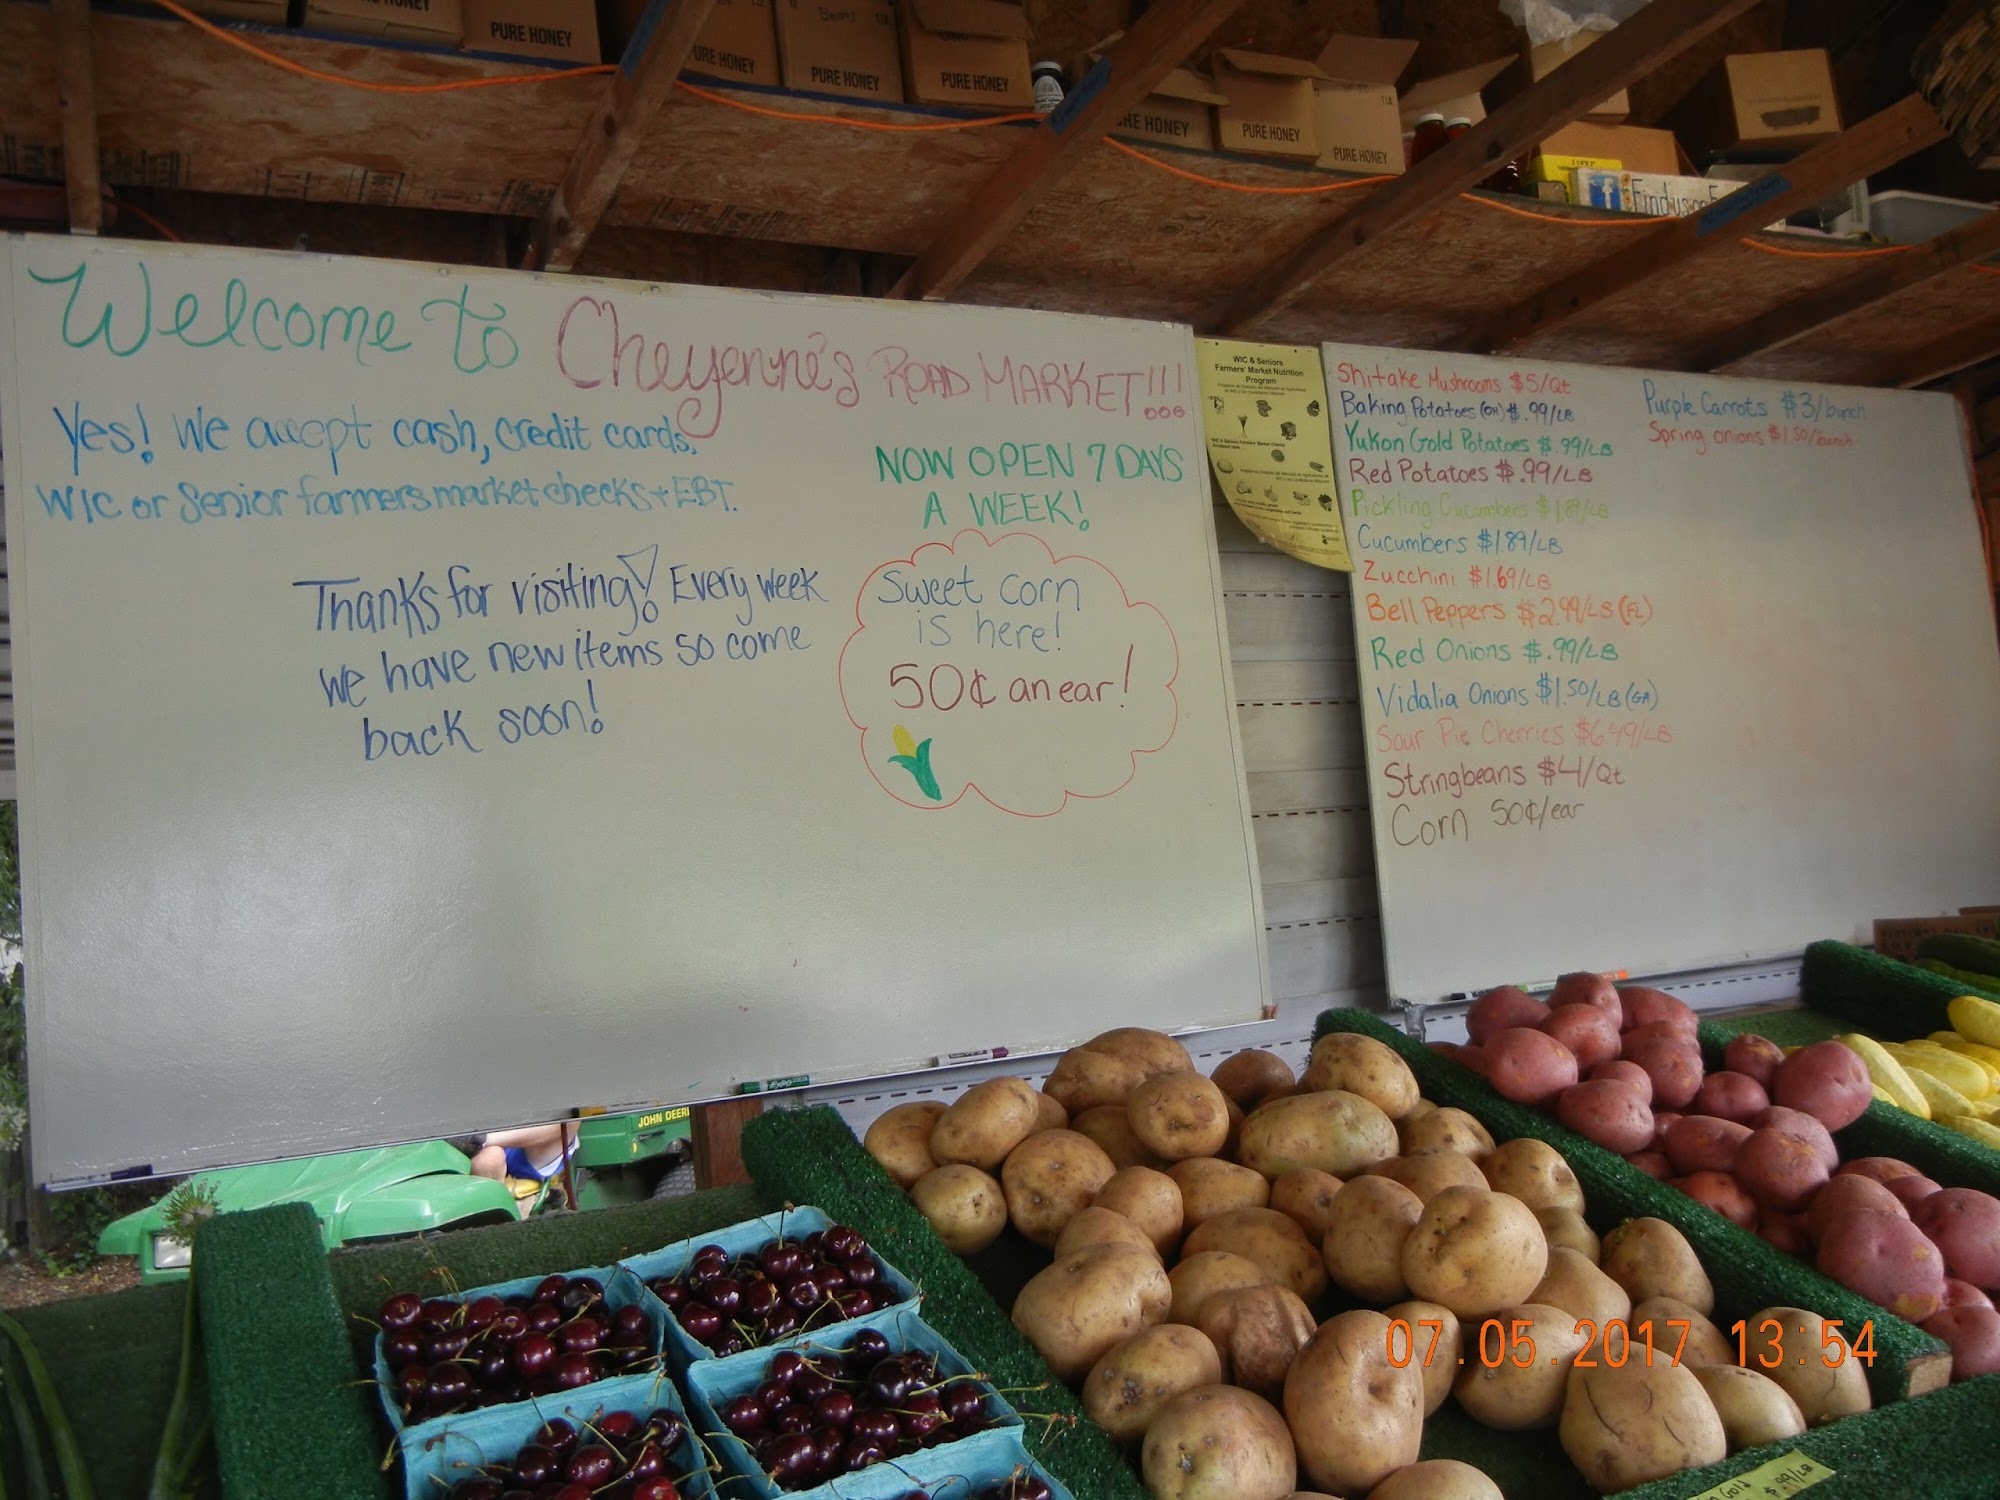 PURE HONEY
PURE HONEY
PURE HONEY
PURE HONEY
PURE HONEY
PURE HONEY
Find us on
Welcome to Cheyenne's ROAD MARKET!!!
Yes! We accept cash, credit cards,
WIC or Senior farmers market checks + EBT.
NOW OPEN 7 DAYS
A WEEK!
Thanks for visiting! Every week
we have new items so come
back soon!
Sweet corn
is here!
50¢ an ear!
WIC & Seniors
Farmers' Market Nutrition
Program
Shitake Mushrooms $5/Qt
Baking Potatoes (OH) $.99/LB
Yukon Gold Potatoes $.99/LB
Red Potatoes $.99/LB
Pickling Cucumbers $1.89/LB
Cucumbers $1.89/LB
Zucchini $1.69/LB
Bell Peppers $2.99/LB (FL)
Red Onions $.99/LB
Vidalia Onions $1.50/LB (GA)
Sour Pie Cherries $6.49/LB
Stringbeans $4/Qt
Corn 50¢/ear
Purple Carrots $3/bunch
Spring onions $1.50/bunch
EXPO
JOHN DEERE
Gold $.99/LB
07.05.2017 13:54